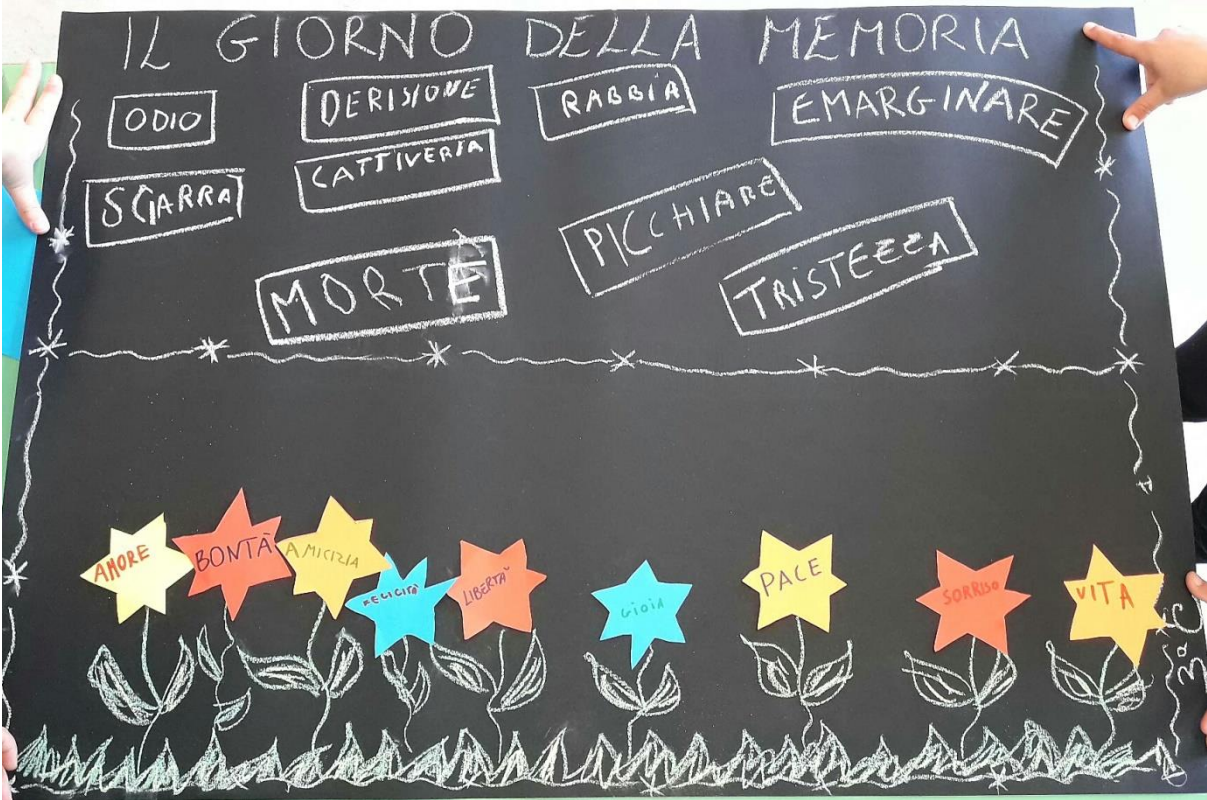 IL GIORNO DELLA MEMORIA
ODIO
DERISIONE
RABBIA
EMARGINARE
SCIARRA
CATTIVERIA
PICCHIARE
MORTE
TRISTEZZA
AMORE
BONTÀ
AMICIZIA
FELICITÀ
LIBERTÀ
GIOIA
PACE
SORRISO
VITA
3ª C